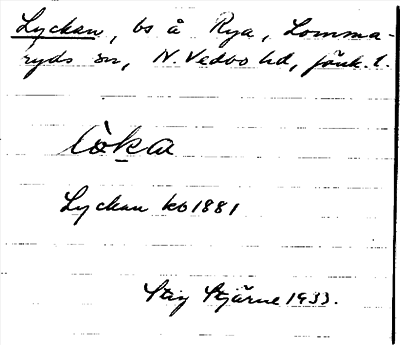 Lyckan, bs å Rya, Lomma-
ryds sn, N. Vedbo hd, Jönk. l.
lò̀ka
Lyckan kb 1881
Stig Stjärne 1933.